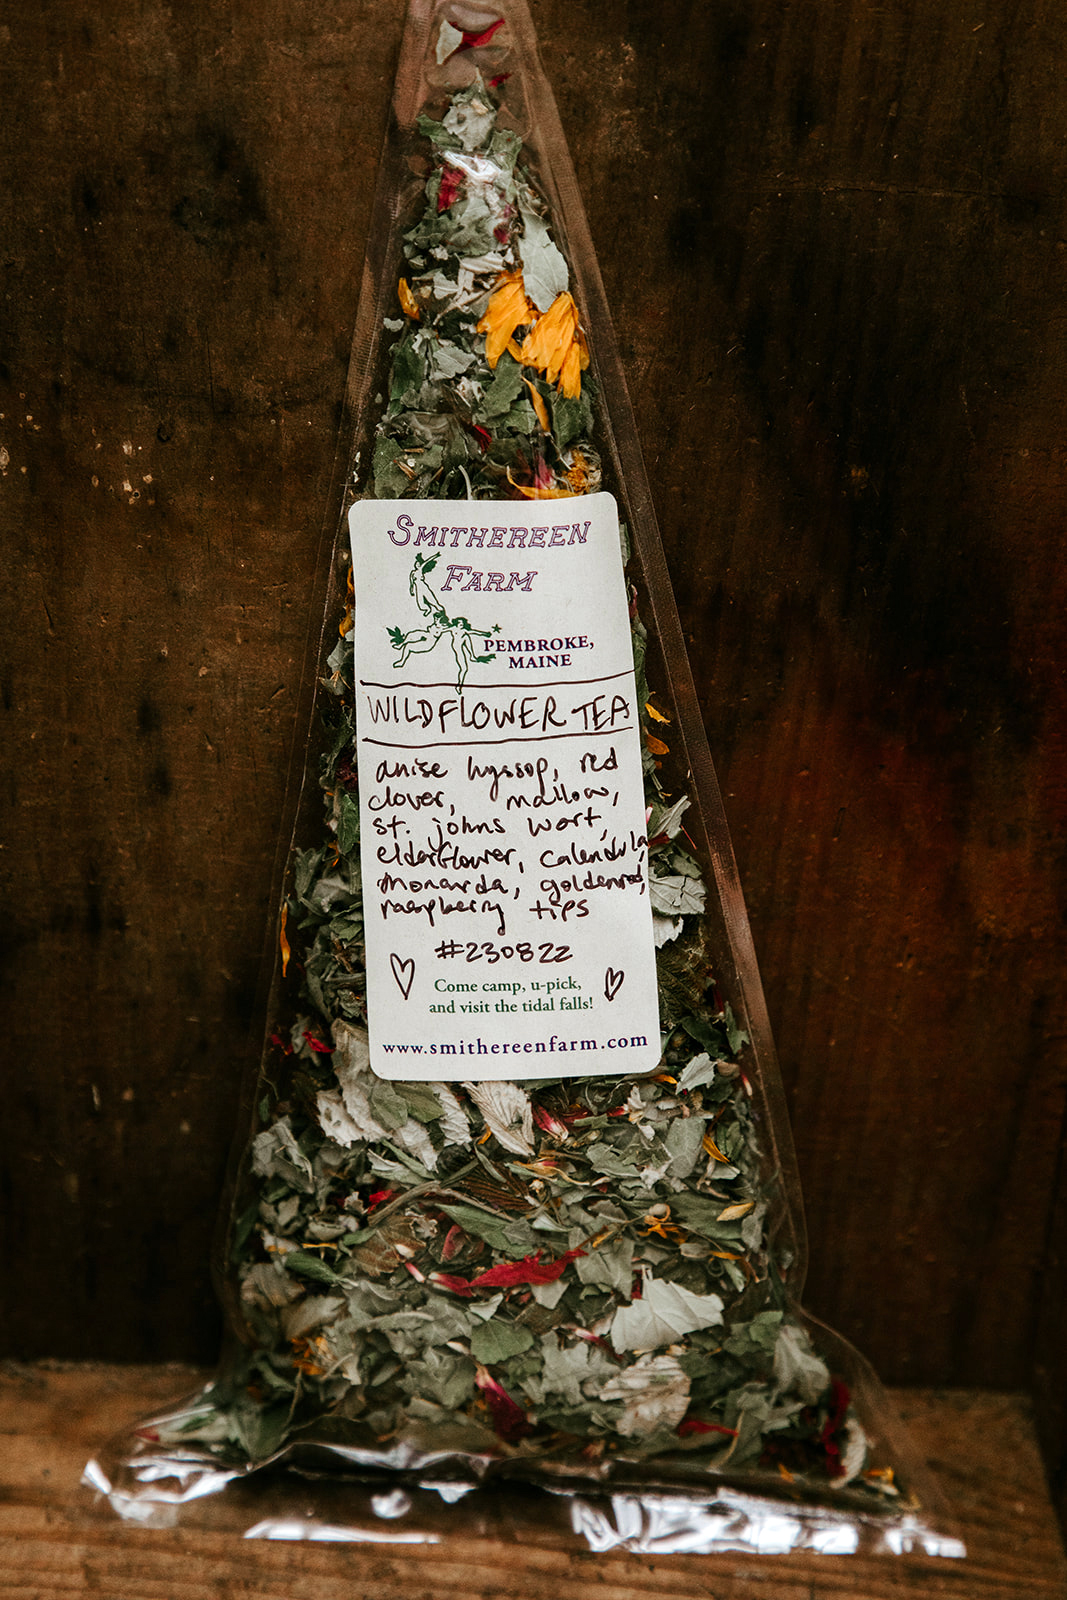 SMITHEREEN
FARM
PEMBROKE,
MAINE
WILDFLOWER TEA
anise hyssop, red
clover, mallow,
st. johns wort,
elderflower, calendula,
monarda, goldenrod,
raspberry tips
#230822
Come camp, u-pick,
and visit the tidal falls!
www.smithereenfarm.com